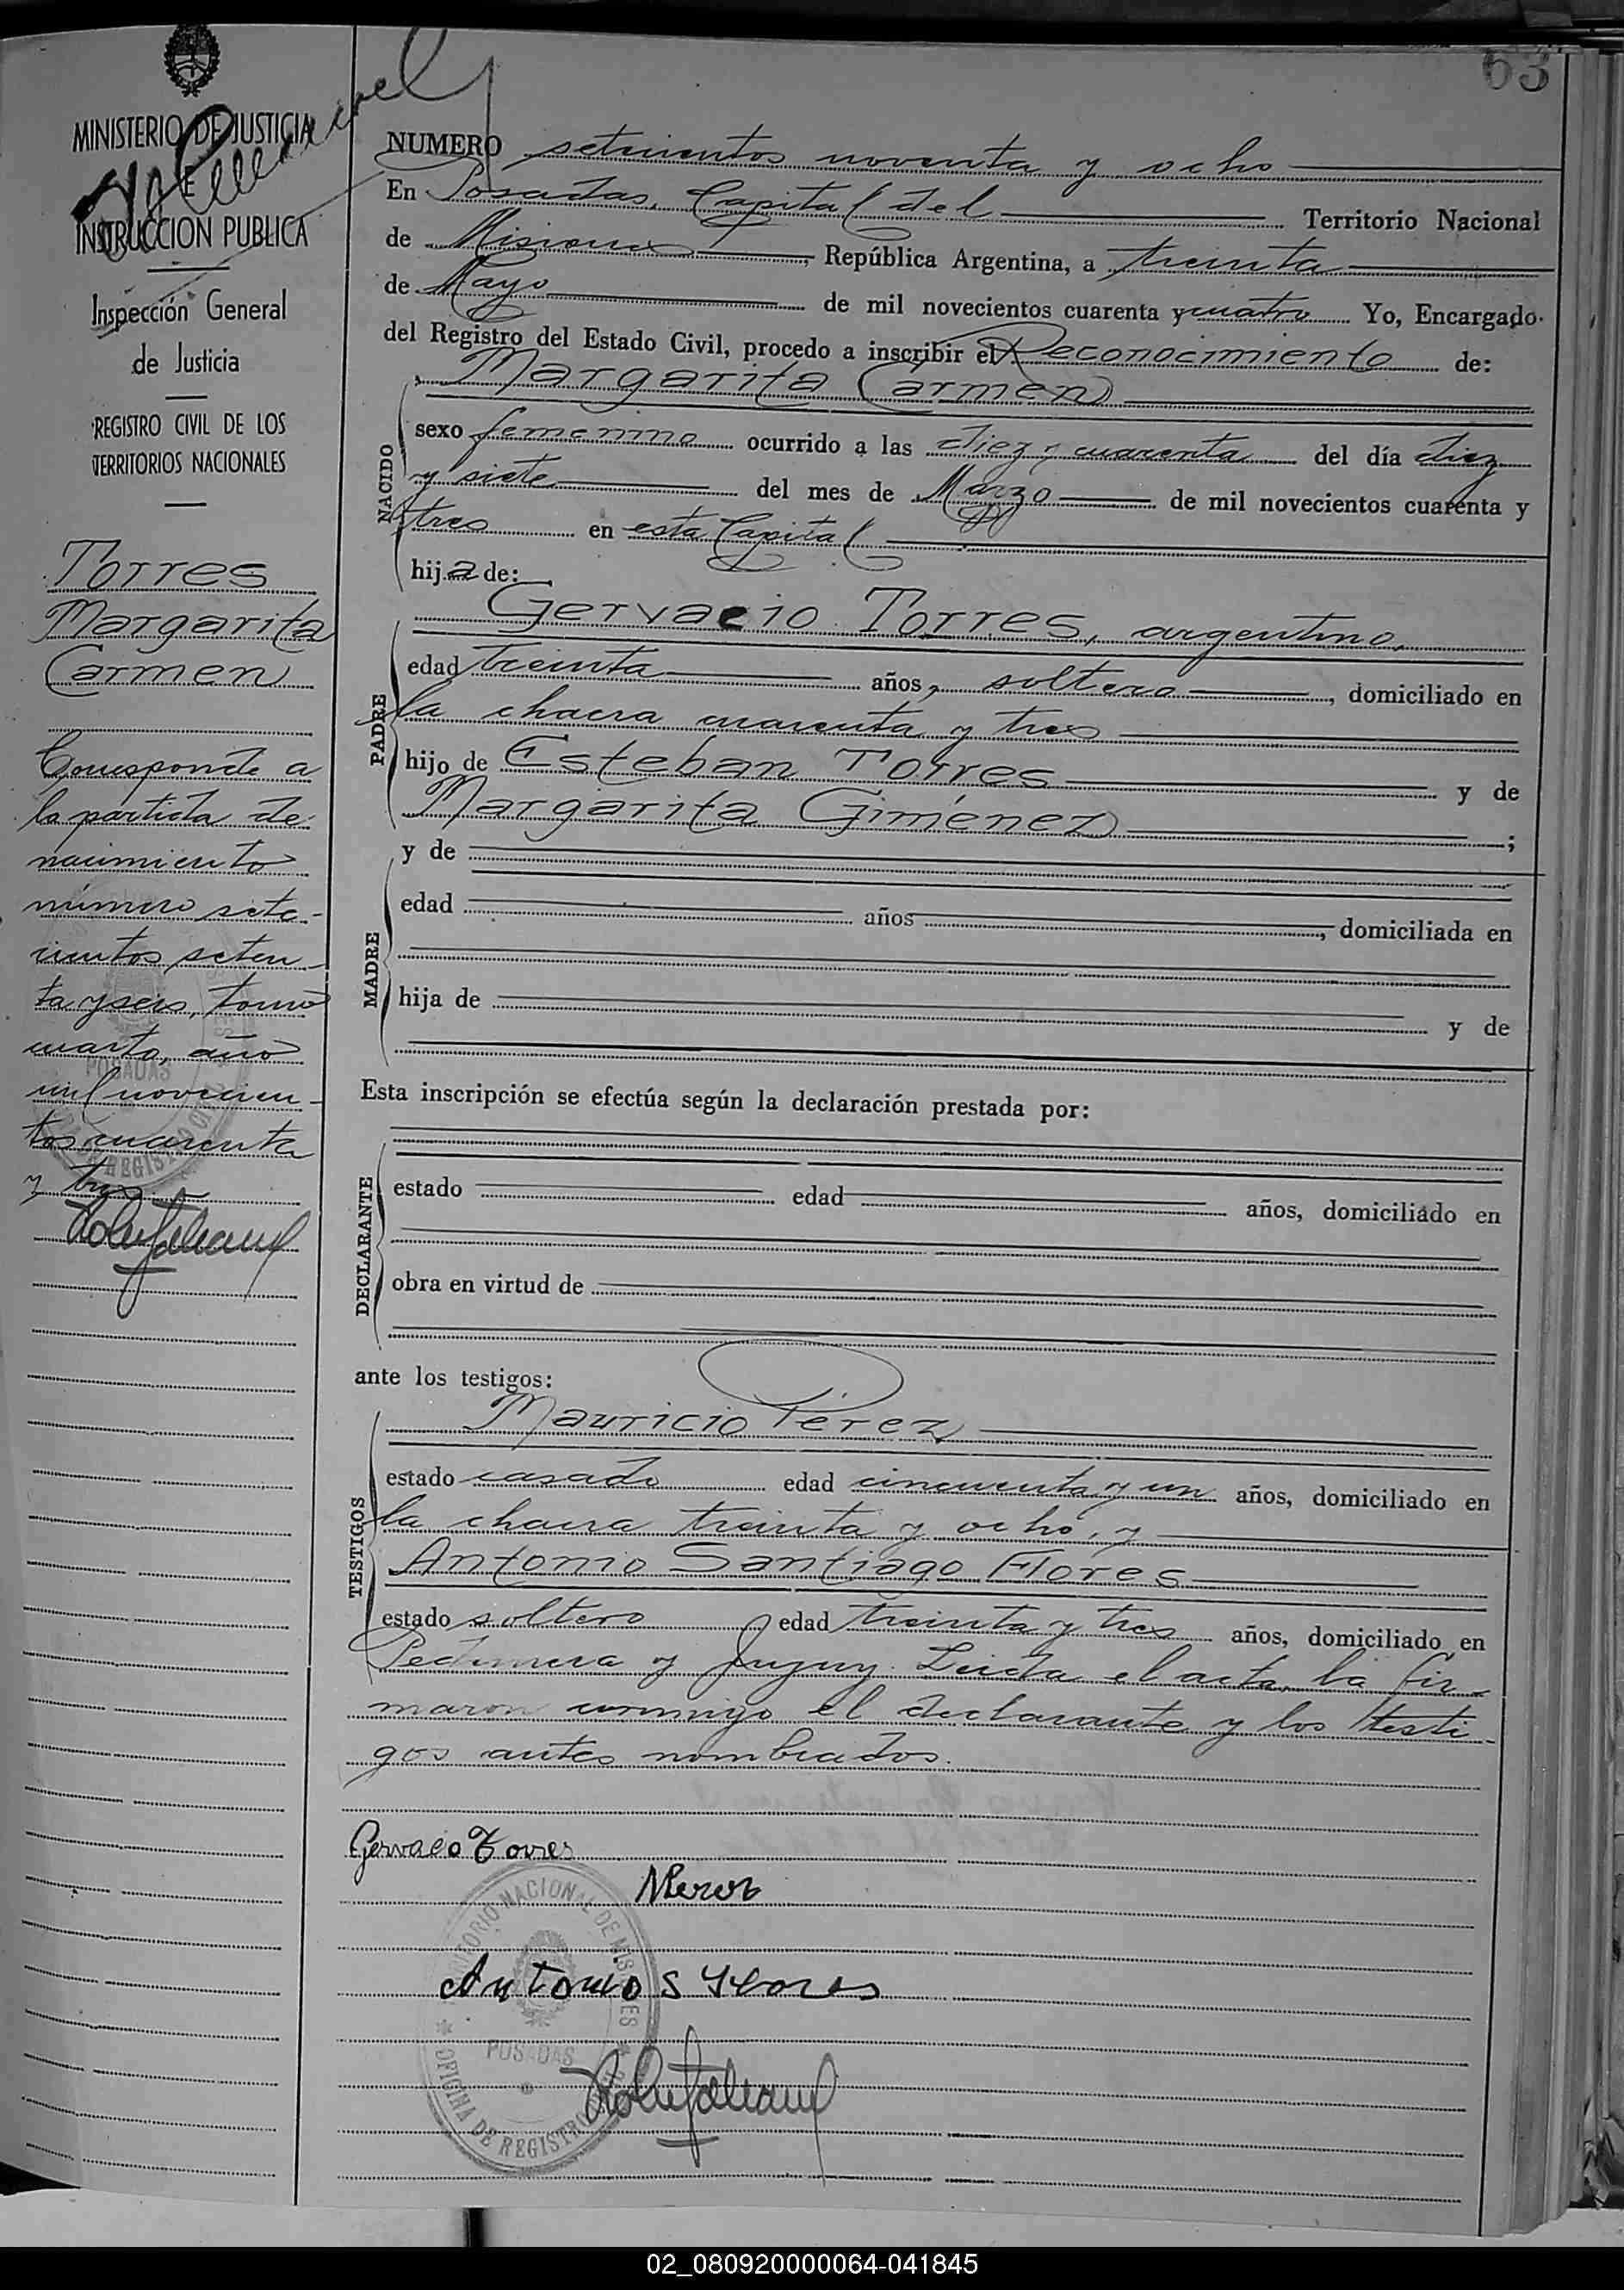 63
MINISTERIO DE JUSTICIA
E
INSTRUCCION PUBLICA
Inspección General
de Justicia
REGISTRO CIVIL DE LOS
TERRITORIOS NACIONALES
Torres
Margarita
Carmen
Corresponde a
la partida de
nacimiento
número sete-
cientos seten-
ta y seis, tomo
cuarto, año
mil novecien-
tos cuarenta
y tres
NUMERO setecientos noventa y ocho
En Posadas, Capital del Territorio Nacional
de Misiones, República Argentina, a treinta
de Mayo de mil novecientos cuarenta y cuatro Yo, Encargado
del Registro del Estado Civil, procedo a inscribir el Reconocimiento de:
Margarita Carmen
NACIDO
sexo femenino ocurrido a las diez y cuarenta del día diez
y siete del mes de Marzo de mil novecientos cuarenta y
tres en esta Capital
hija de:
PADRE
Gervacio Torres, argentino,
edad treinta años, soltero, domiciliado en
la chacra cuarenta y tres
hijo de Esteban Torres y de
Margarita Giménez;
MADRE
y de
edad años, domiciliada en
hija de y de
Esta inscripción se efectúa según la declaración prestada por:
DECLARANTE
estado edad años, domiciliado en
obra en virtud de
ante los testigos:
TESTIGOS
Mauricio Pérez
estado casado edad cincuenta y un años, domiciliado en
la chacra treinta y ocho, y
Antonio Santiago Flores
estado soltero edad treinta y tres años, domiciliado en
y Jujuy. Leída el acta, la fir-
maron conmigo el declarante y los testi-
gos antes nombrados.
Gervacio Torres
Antonio S Flores
TERRITORIO NACIONAL DE MISIONES
POSADAS
OFICINA DE REGISTRO CIVIL
02_080920000064-041845